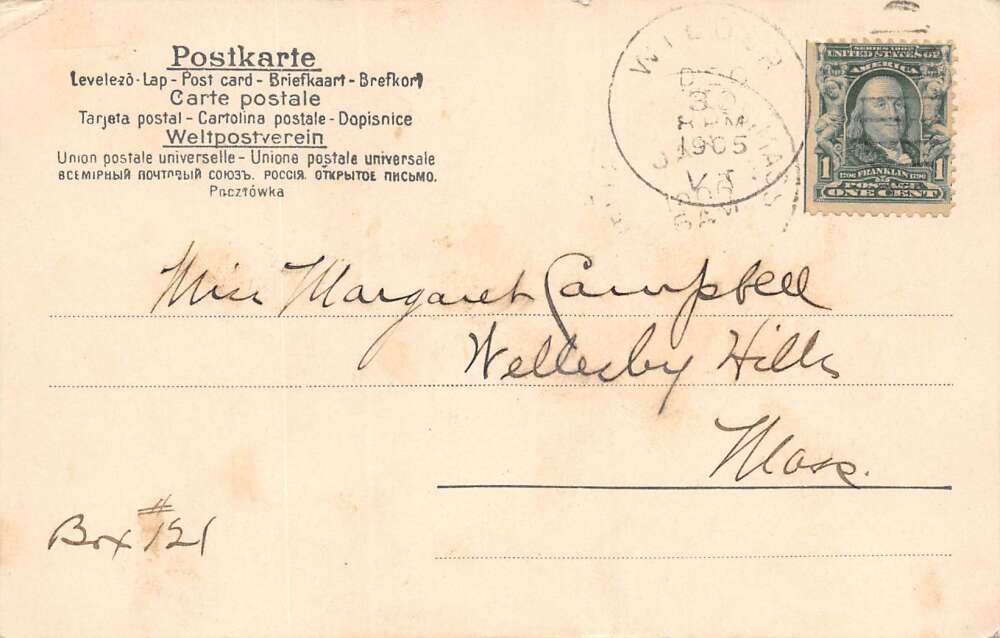 Postkarte
Levelező-Lap - Post card - Briefkaart - Brefkort
Carte postale
Tarjeta postal - Cartolina postale - Dopisnice
Weltpostverein
Union postale universelle - Unione postale universale
ВСЕМІРНЫЙ ПОЧТОВЫЙ СОЮЗЪ. РОССІЯ. ОТКРЫТОЕ ПИСЬМО.
Pocztówka
WILDER
DEC
30
8 AM
1905
VT
MASS
JAN
1906
SERIES 1902
UNITED STATES OF
AMERICA
1706 FRANKLIN 1790
1 POSTAGE 1
ONE CENT
Miss Margaret Campbell
Wellesley Hills
Mass.
Box #121